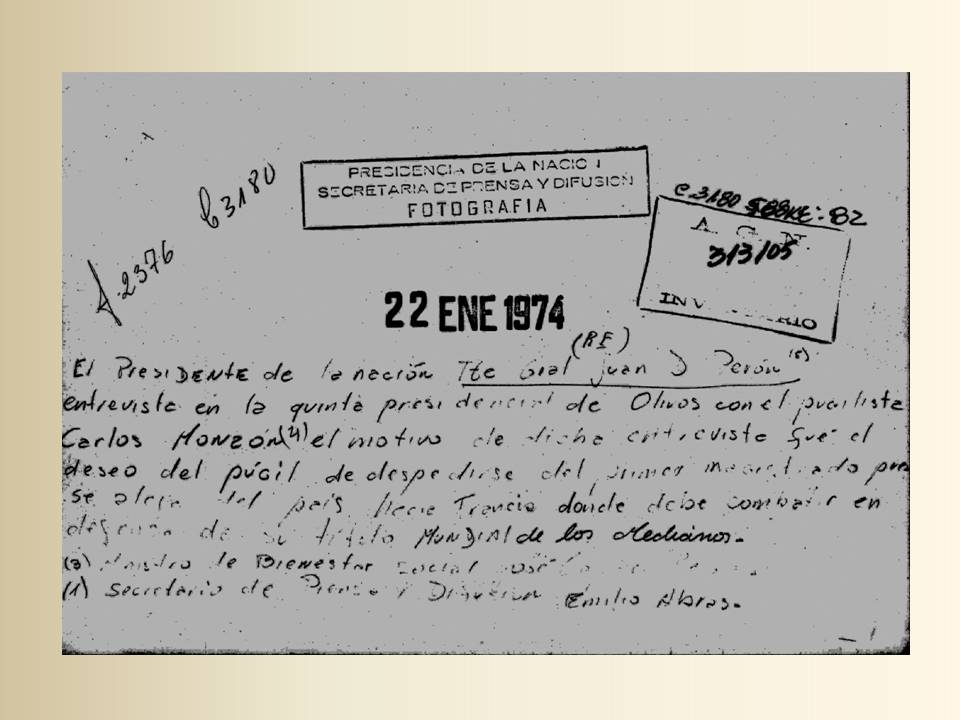 A.2376
b 3180
PRESIDENCIA DE LA NACION
SECRETARIA DE PRENSA Y DIFUSION
FOTOGRAFIA
C.3180 : B2
A. G. N.
313/05
INV
22 ENE 1974
(RE)
El PresIDENtE de la nación Tte Gral Juan D Perón
entrevista en la quinta presidencial de Olivos con el pugilista
Carlos MONZÓN(4) el motivo de dicha entrevista fue el
deseo del púgil de despedirse del primer magistrado pues
se aleja del país hacia Francia donde debe combatir en
defensa de su título MUNDIAL de los Medianos.
(3) Ministro de Bienestar Social José
(1) Secretario de Prensa y Difusión Emilio Abras.